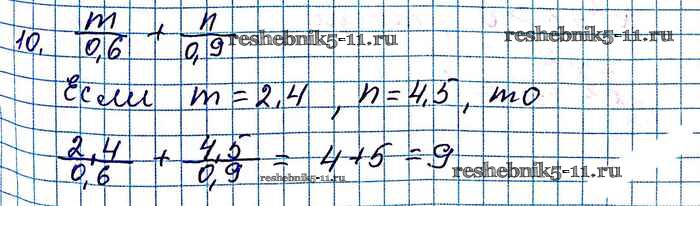 10. m/0,6 + n/0,9 reshebnik5-11.ru reshebnik5-11.ru
Если m = 2,4, n = 4,5, то
2,4/0,6 + 4,5/0,9 = 4+5 = 9 reshebnik5-11.ru
reshebnik5-11.ru